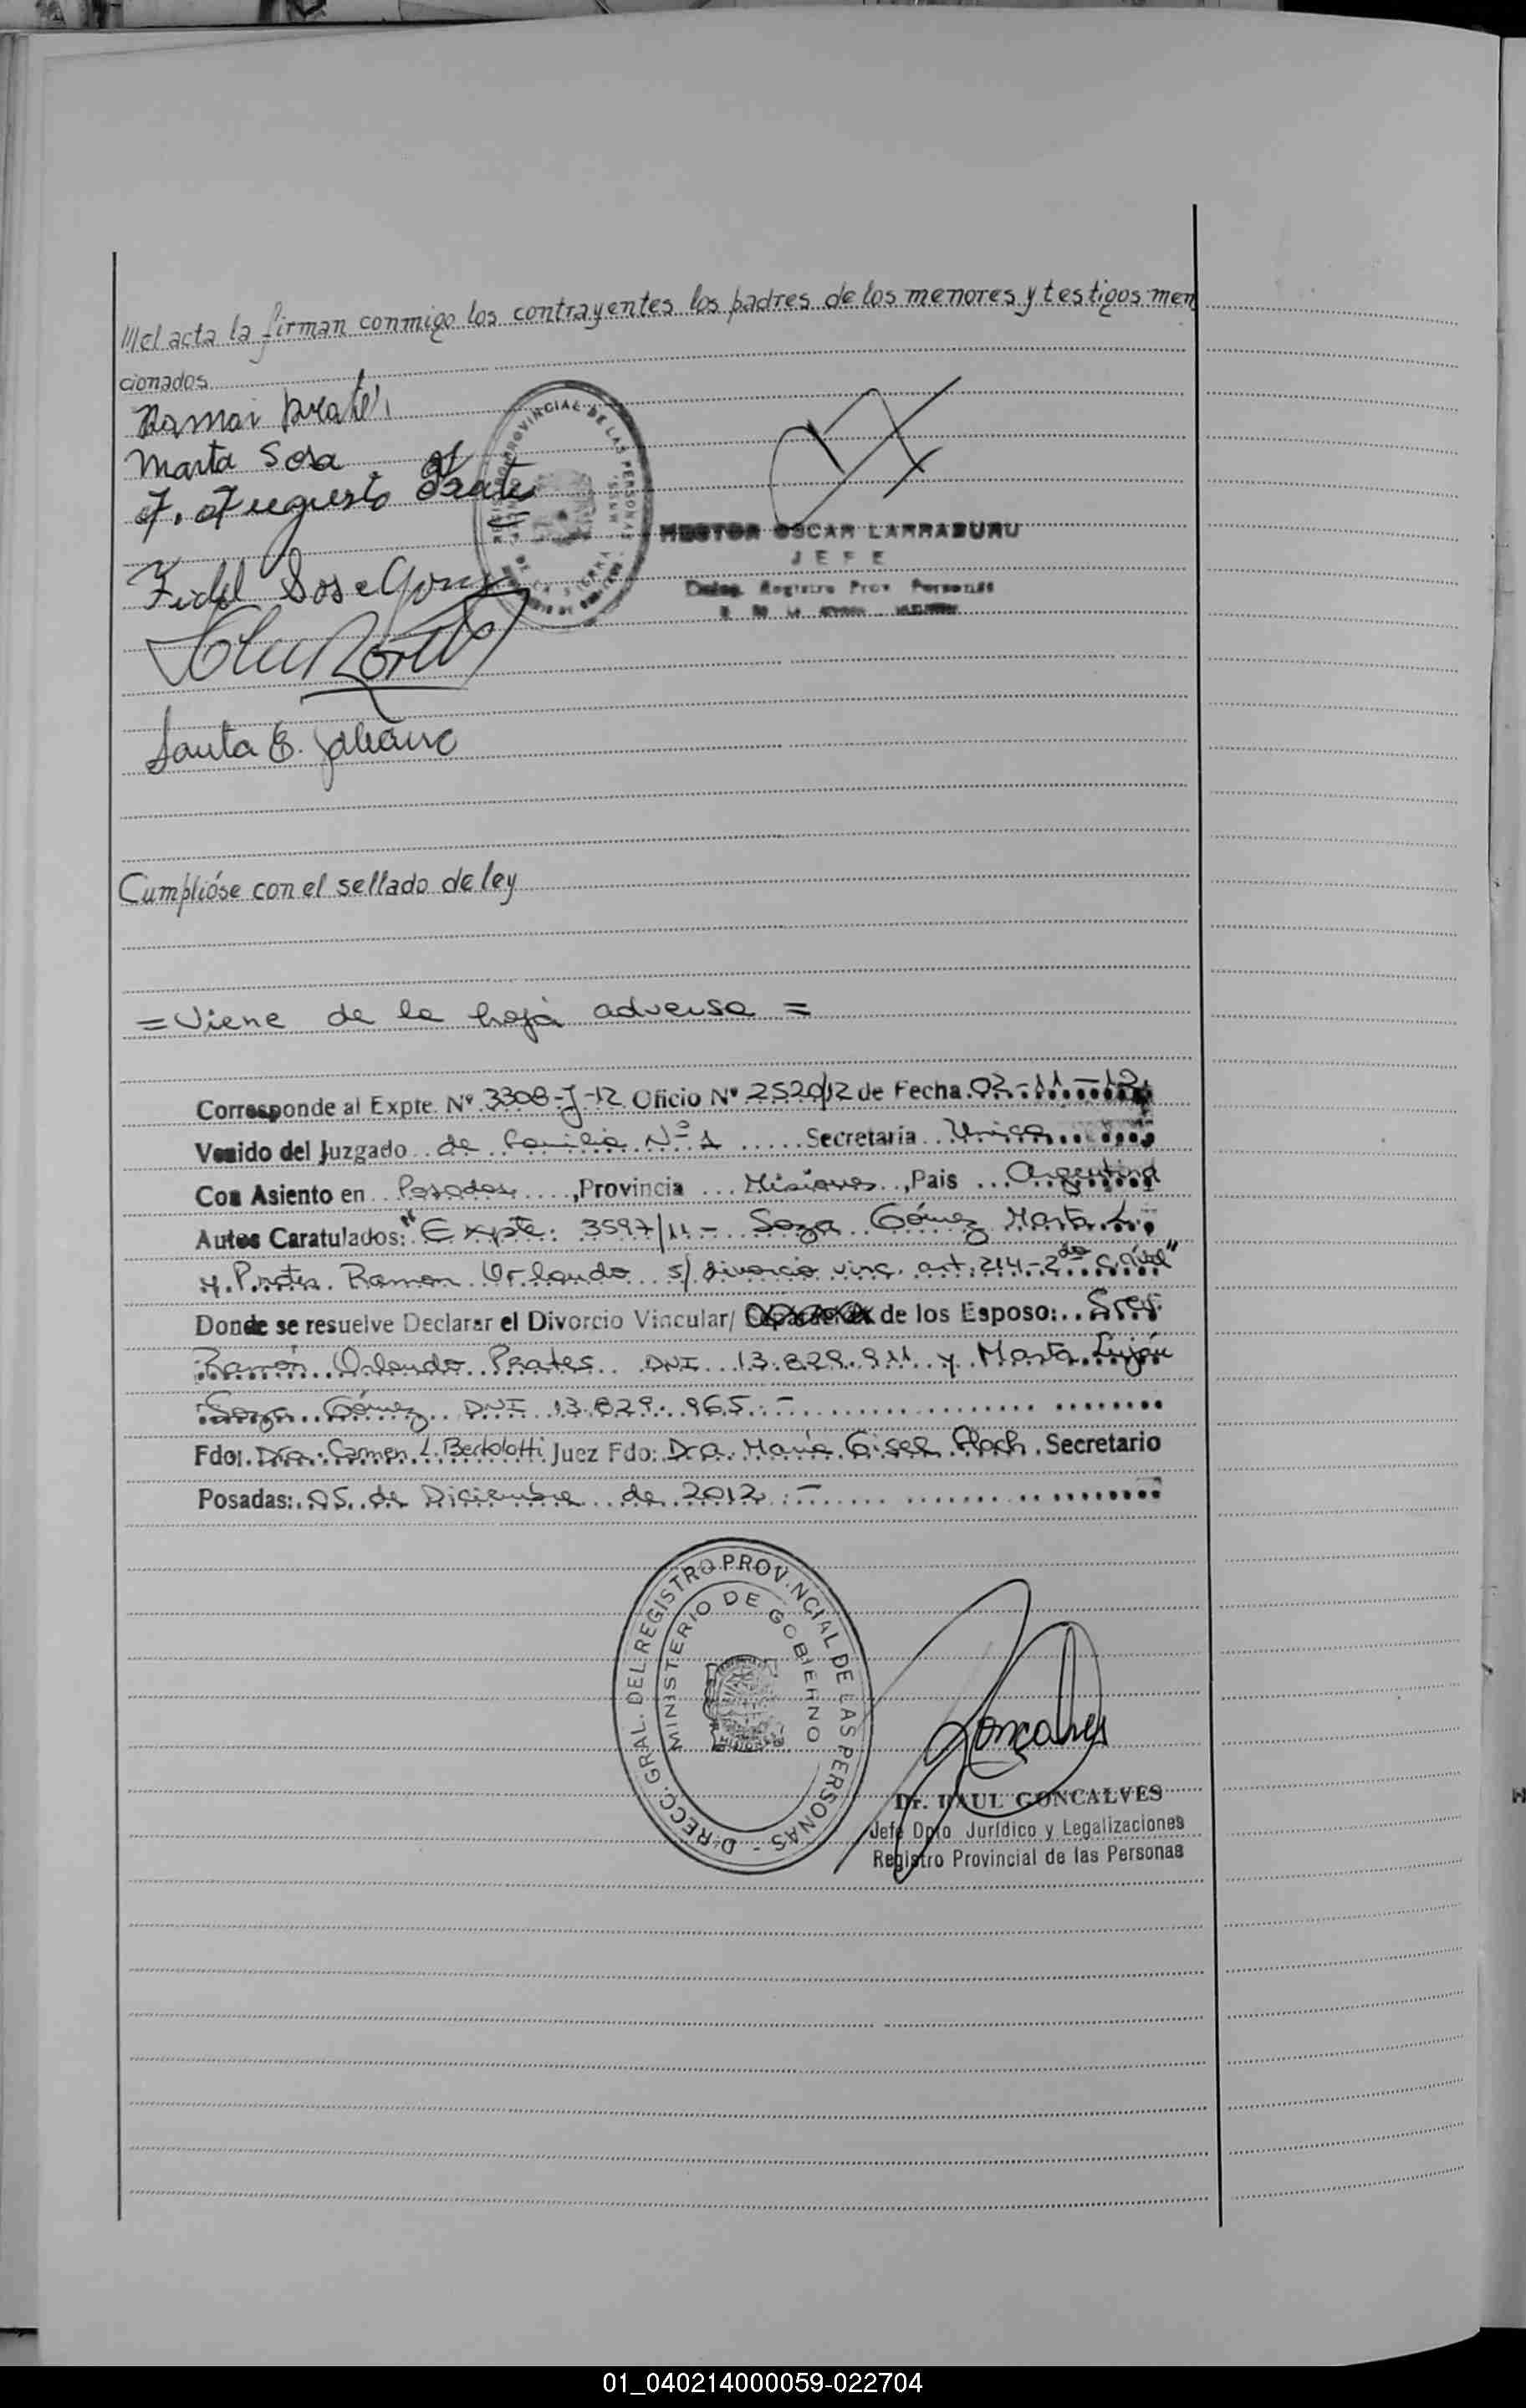 ///el acta la firman conmigo los contrayentes los padres de los menores y testigos men
cionados
Marta Sosa
Santa E. Galeano
REGISTRO PROVINCIAL DE LAS PERSONAS
HECTOR OSCAR LARRABURU
JEFE
Deleg. Registro Prov Personas
Cumplióse con el sellado de ley
= Viene de la hoja adversa =
Corresponde al Expte. Nº 3308-J-12 Oficio Nº 2520/12 de Fecha. 02-11-12.
Venido del Juzgado de Familia Nº 1 Secretaría Unica
Con Asiento en Posadas, Provincia Misiones, Pais Argentina
Autos Caratulados: "Expte: 3597/11 - Soza Gómez Marta L.
y Prates Ramon Orlando s/ divorcio vinc. art. 214-2do C. Civil"
Donde se resuelve Declarar el Divorcio Vincular/ de los Esposo: Sres.
Ramón Orlando Prates DNI 13.829.911 y Marta Luján
Soza Gómez DNI 13.829.965.-
Fdo: Dra. Carmen L. Bertolotti Juez Fdo: Dra. María Gisel Floch. Secretario
Posadas: 05 de Diciembre de 2012.-
DIRECC. GRAL. DEL REGISTRO PROVINCIAL DE LAS PERSONAS -
MINISTERIO DE GOBIERNO
MISIONES
Goncalves
Dr. RAUL GONCALVES
Jefe Dpto Jurídico y Legalizaciones
Registro Provincial de las Personas
01_040214000059-022704